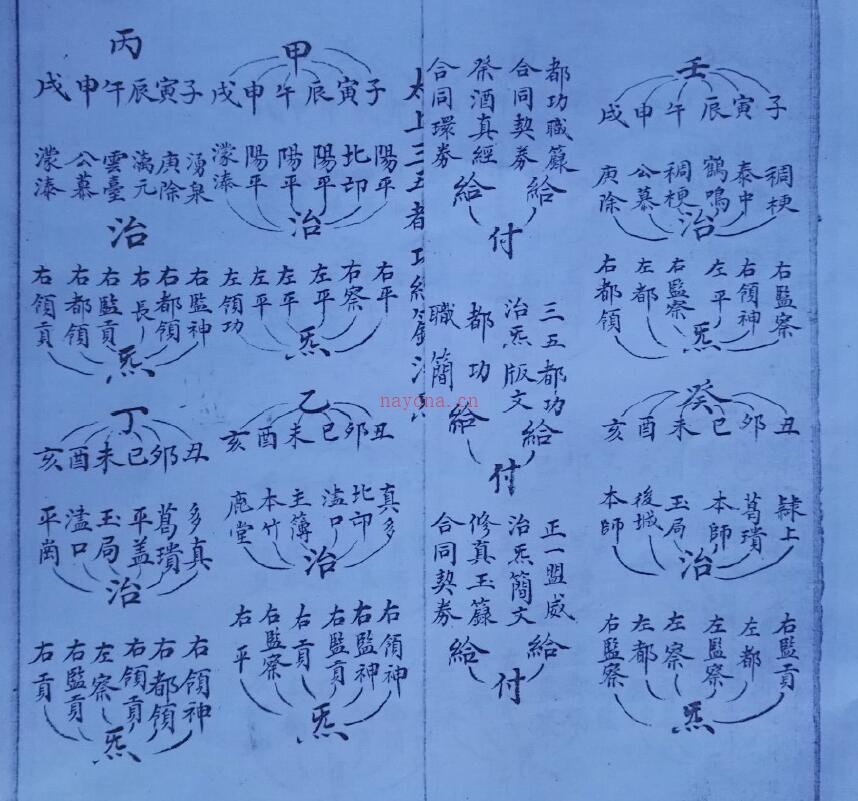 壬
子寅辰午申戌
稠梗
泰中
鶴鳴
稠梗
公慕
庚除
治
右監察
右領神
左平
右監察
左都
右都領
炁
癸
丑卯巳未酉亥
隷上
葛璝
本師
玉局
後城
本師
治
右監貢
左都
左監察
左察
左都
右監察
炁
都功職籙
合同契券
祭酒真經
合同環券
給
給
付
三五都功
治炁版文
都功
職簡
給
給
付
正一盟威
治炁簡文
修真玉籙
合同契券
給
給
付
太上三五都功經籙治炁
甲
子寅辰午申戌
陽平
北邙
陽平
陽平
陽平
濛泰
治
右平
右察
左平
左平
左平
左領功
炁
乙
丑卯巳未酉亥
真多
北邙
溘口
主簿
本竹
鹿堂
治
右領神
右監神
右監貢
右貢
右監察
右平
炁
丙
子寅辰午申戌
湧泉
庚除
漓元
雲臺
公慕
濛泰
治
右監神
右都領
右長
右監貢
右都領
右領貢
炁
丁
丑卯巳未酉亥
多真
葛璝
平盖
玉局
溘口
平崗
治
右領神
右都領
右領貢
左察
右監貢
右貢
炁
nayona.cn